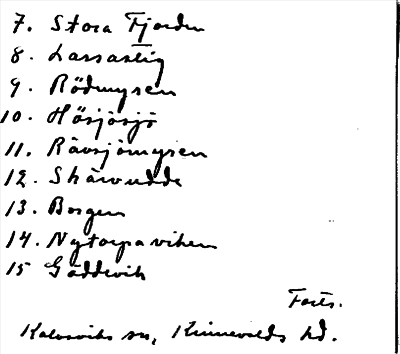 7. Stora Fjorden
8. Lassastig
9. Rödmyren
10. Hösjösjö
11. Rävsjömyren
12. Skärvudde
13. Borgen
14. Nytorpaviken
15 Gäddevik
Forts.
Kalvsviks sn, Kinnevalds hd.